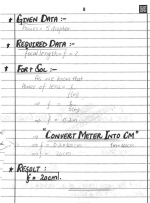 * GIVEN DATA :-
Power = 5 diopter
* REQUIRED DATA :-
focal length = f = ?
* FOR f SOL :-
As we know that
Power of lens = 1
f(m)
⇒ f =
⇒ f = 0.2m
"CONVERT METER INTO CM"
⇒ f = 20cm
* RESULT :
f = 20cm.